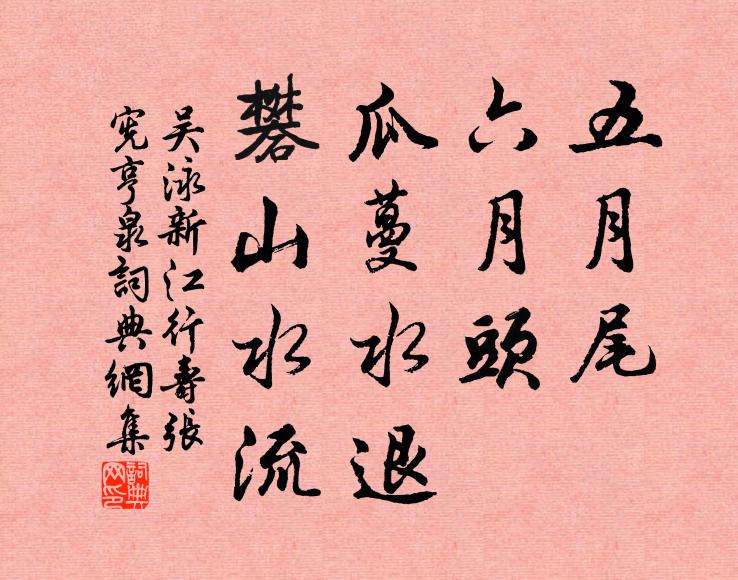 五月尾
六月頭
瓜蔓水退
礬山水流
吴泳新江行壽張
宪亨泉詞典網集
詞典网印